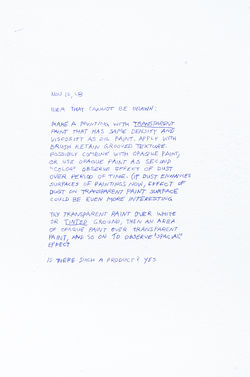 NOV 12, 68
IDEA THAT CANNOT BE DRAWN:
MAKE A PAINTING WITH TRANSPARENT
PAINT THAT HAS SAME DENSITY AND
VISCOSITY AS OIL PAINT. APPLY WITH
BRUSH RETAIN GROOVED TEXTURE.
POSSIBLY COMBINE WITH OPAQUE PAINT,
OR USE OPAQUE PAINT AS SECOND
"COLOR" OBSERVE EFFECT OF DUST
OVER PERIOD OF TIME. (IF DUST ENHANCES
SURFACES OF PAINTINGS NOW, EFFECT OF
DUST ON TRANSPARENT PAINT SURFACE
COULD BE EVEN MORE INTERESTING
TRY TRANSPARENT PAINT OVER WHITE
OR TINTED GROUND, THEN AN AREA
OF OPAQUE PAINT OVER TRANSPARENT
PAINT, AND SO ON TO OBSERVE "SPACIAL"
EFFECT
IS THERE SUCH A PRODUCT? YES